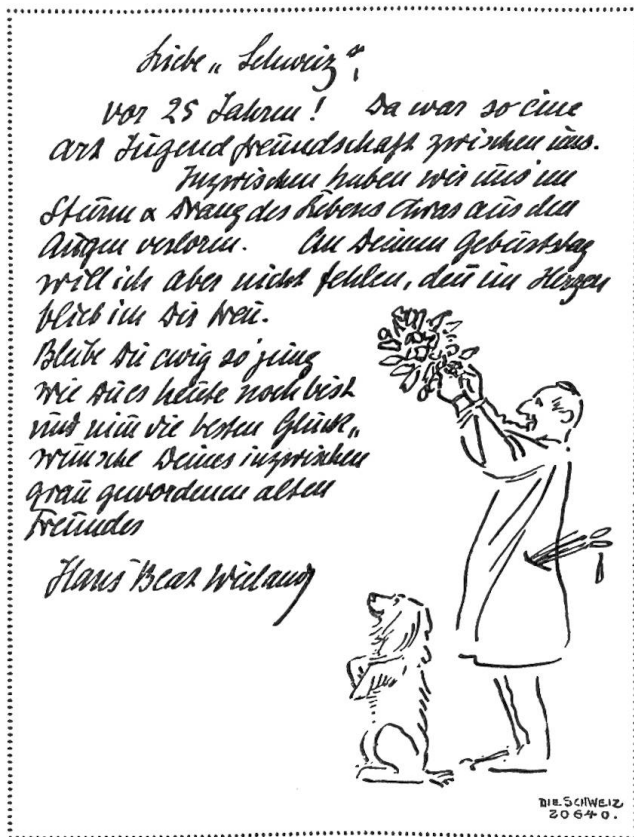 Liebe „Schweiz",
vor 25 Jahren! Da war so eine
Art Jugendfreundschaft zwischen uns.
Inzwischen haben wir uns im
Sturm & Drang des Lebens etwas aus den
Augen verloren. An Deinem Geburtstag
will ich aber nicht fehlen, den̄ im Herzen
blieb ich Dir treu.
Bleibe Du ewig so jung
wie Du es heute noch bist
und nim̄ die besten Glück„
wünsche Deines inzwischen
grau gewordenen alten
Freundes
Hans Beat Wieland
DIE SCHWEIZ
20640.